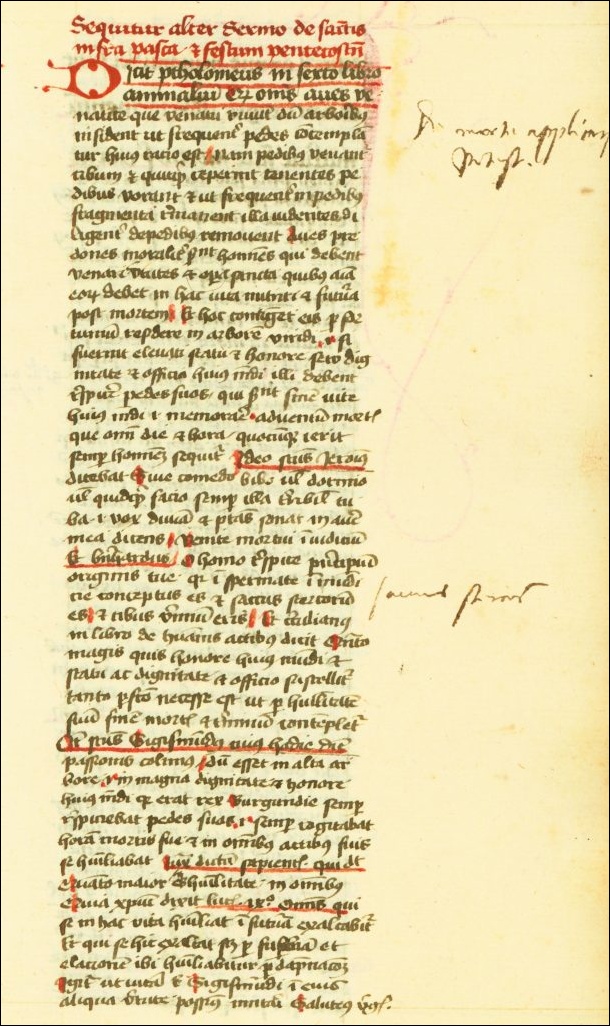 Sequitur alter Sermo de sanctis
infra pasca & festum pentecosten
Dicit ptholomeus in sexto libro
animaliu qz omnis aues ve
natice que venatu viuut du arboribus
insident ut frequent pedes contempla
tur huius racio est Nam pedibus venant
cibum & quicqz ceperint tenentes pe
dibus vorant & ut frequent in pedibus
fragmenta remanent illa videntes di
ligent de pedibus remouent Aues pre
dones moralit sunt homines qui debent
venari virtutes & opera sancta quibus aia
eorz debet in hac vita nutriri & futura
post mortem Et hoc continget eis per
respicere in arborem viridi si
fuerint eleuati statu & honore seu dig
nitate & officio huius mundi illi debent
respicere pedes suos qui sunt finis vite
huius mundi i memorare aduentum mortis
que omni die & hora quocunqz ierit
semper hominem sequitur Ideo sanctus Jeronimus
dicebat Siue comedo bibo vel dormio
vel quidquid facio semper illa terribilis tu
ba i vox sonat in auri
mea dicens Venite mortui in iudicium
Et bernhardus O homo respice principium
originis tue qz in spermate in mundi
cie conceptus es & saccus stercorum
es & cibus vermium eris Et
in libro de humanis actibus dicit Quanto
magis quis honore huius mundi &
statu ac dignitate & officio extollitur
tanto necesse est ut per humilitatem
suum finem mortis & terminum contempletur
Et sanctus Sigismundus cuius hodie diem
passionis colimus dum esset in alta ar
bore i in magna dignitate & honore
huius mundi qz erat rex Burgundie semper
respiciebat pedes suos i semper cogitabat
horam mortis sue & in omnibus actibus suis
se humiliabat iuxta dictum sapientis qui dicit
Quanto maior es humilita te in omnibus
Quia christus dixit luce Omnis qui
se in hac vita humiliat in futura exaltabitur
Et qui se hic exaltat per superbiam et
elacionem ibi humiliabitur per dampnacionem
Igitur ut vitam sancti Sigismundi in eius
aliqua virtute possimus imitari Salutemus virginem
De morte
potest